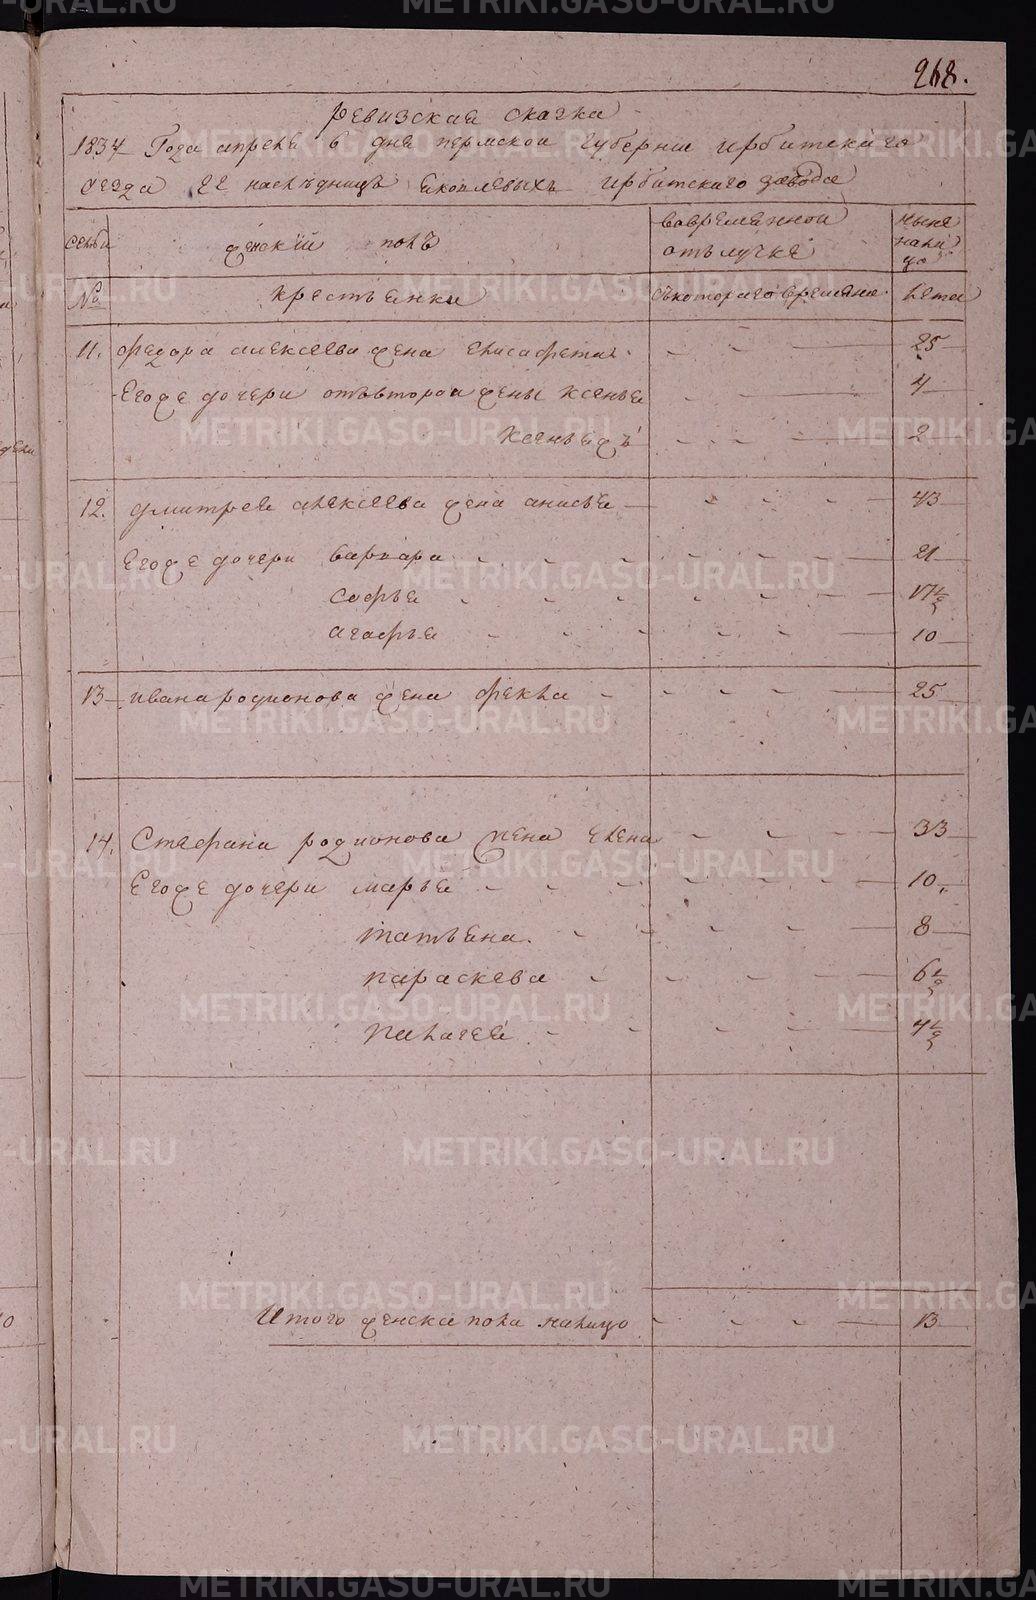 268.
ревизская сказка
1834 Года апреля в дня пермской Губернии ирбитскаго
уезда ЕЕ наследницъ яковлевыхъ ирбитскаго завода
семьи женскій полъ вовременной отълучке ныне налицо
№ крестьянки съкотораго времяни лета
11. федора алексеева жена елисафетия - - 25
Егоже дочери отъвторои жены Ксенья - - 4
- - - 2
12. дмитрея алексеева жена анисья - - - 43
Егоже дочери варвара - - - - 21
софья - - - - 17 1/2
агафья - - - - 10
13 ивана родионова жена фекла - - - - 25
14. Стефана родионова жена елена - - - 33
Егоже дочери марья - - - - 10
татьяна - - - - 8
параскева - - - - 6 1/2
пилагея - - - - 4 1/2
Итого женска пола налицо - - - 13
METRIKI.GASO-URAL.RU